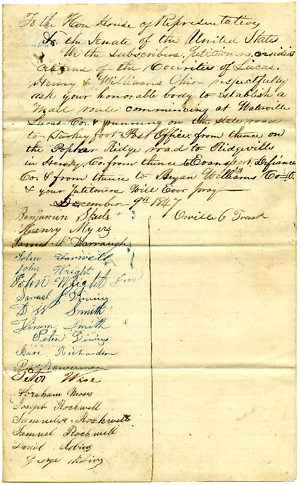 To the Hon House of Representatives
& the Senate of the United States
We the subscribers, Petitioners, residing
citizens of the Counties of Lucas,
Henry & Williams Ohio respectfully
ask your honorable body to establish a
Male route commincing at Waterville
Lucas Co. & running on the state road
to Turkey foot Post Office from thence on
the Poplar Ridge road to Ridgeville
in Henry Co. from thence to Evansport, Defiance
Co. & from thence to Bryan Williams Co. O.
& your Petitioners Will Ever pray
December 9th 1847
Benjamin
Orville C Trask
Henry Myers
John Farwell
John Wright
John Wright Jun
Samuel
D W Smith
Hiram Smith
Richardson
Peter Wise
Abraham Moss
Joseph Rockwell
Rockwell
Samuel Rockwell
Daniel
George